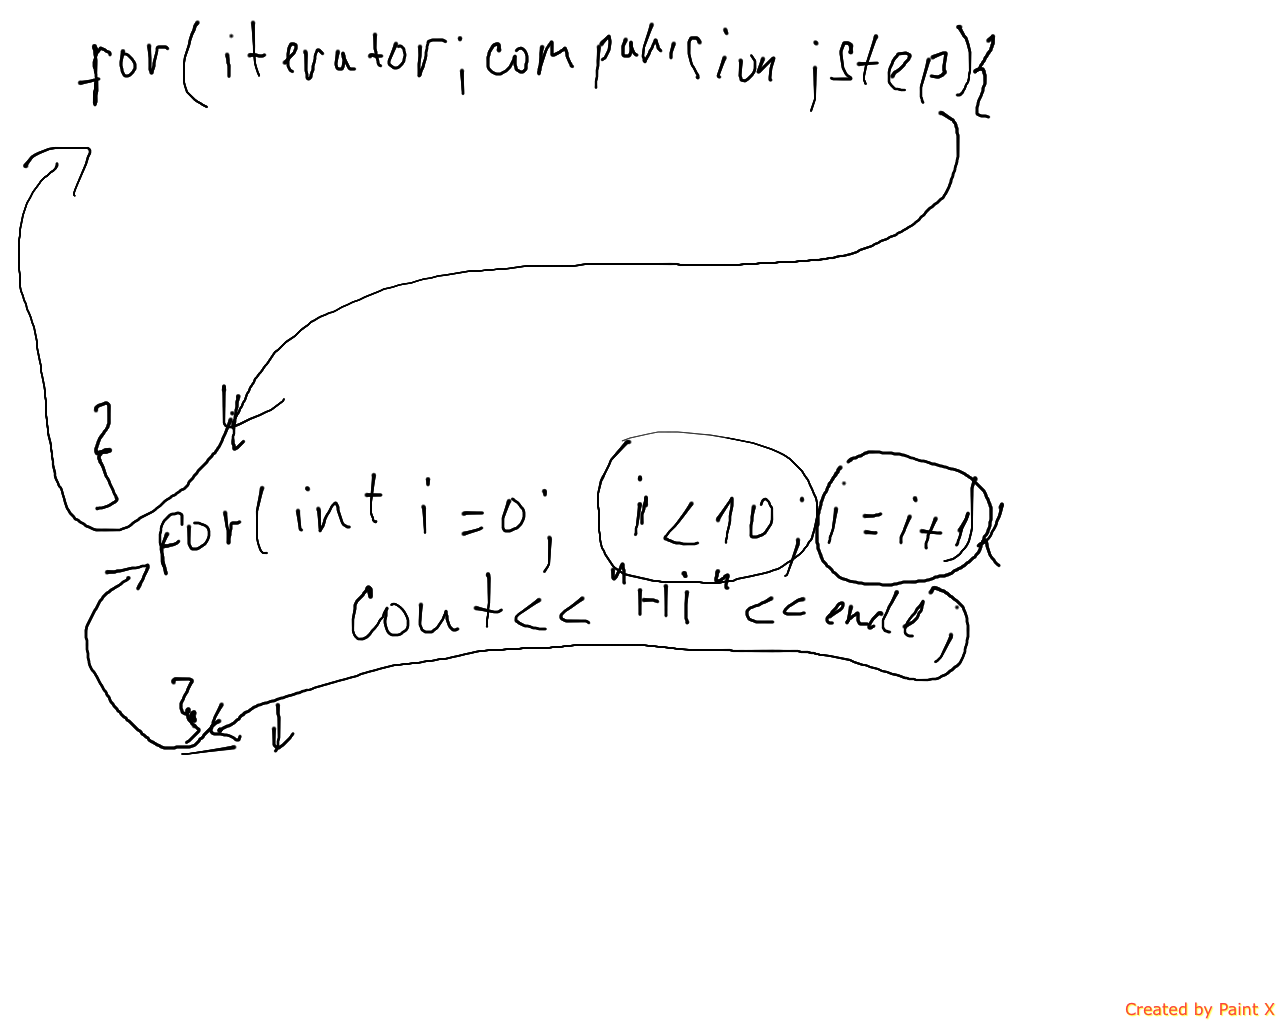 for(iterator;comparision;step){
}
for(int i=0; i<10; i=i+1){
cout<<"Hi"<<endl;
}
Created by Paint X